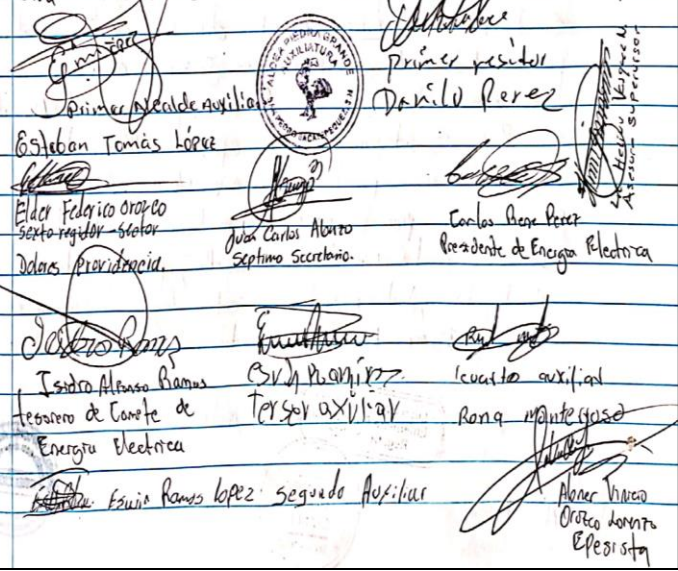 Primer Alcalde Auxiliar
Esteban Tomás López
ALDEA PIEDRA GRANDE
AUXILIATURA
Primer residor
Danilo Perez
Asesora - Supervisor
Elder Federico Orozco
Sexto regidor - Sector
Dolores Providencia.
Juan Carlos
Septimo Secretario.
Carlos Rene Perez
Presidente de Energia Electrica
Isidro Ramos
Isidro Alfonso Ramos
tesorero de Comete de
Energia Electrica
Ramirez
Tersor axiliar
cuarto auxiliar
Rona
Ramos Lopez segundo Auxiliar
Abner Vinicio
Orozco Lorenzo
Epesista